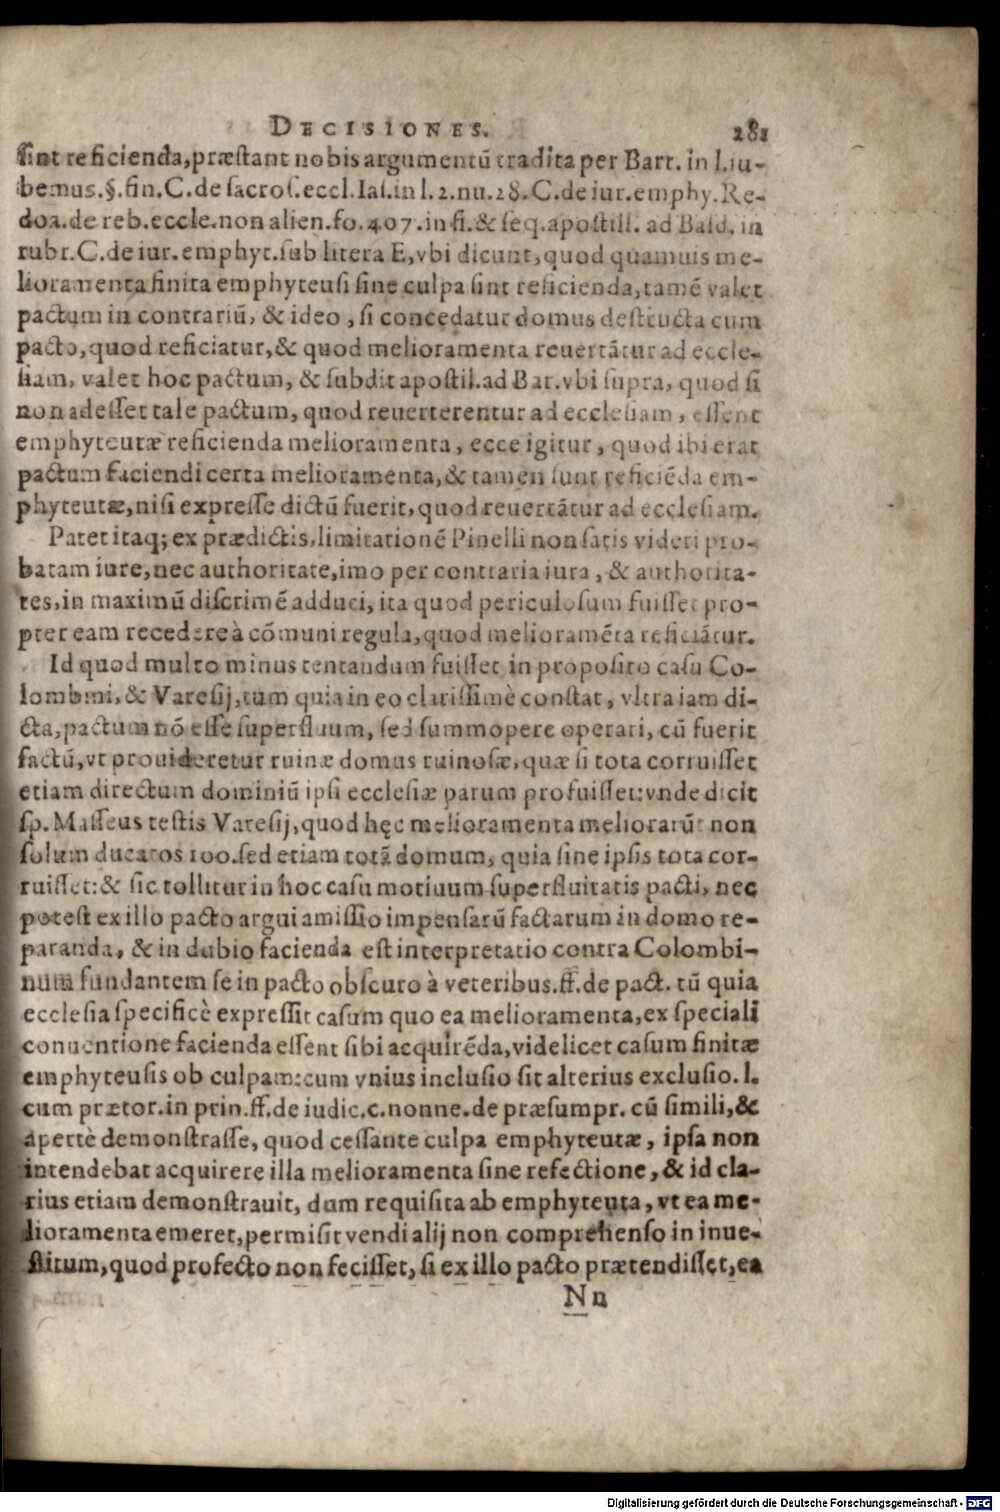 DECISIONES. 281
sint reficienda,præstant nobis argumentũ tradita per Bart. in l.iu-
bemus.§.fin.C.de sacros.eccl.Ias.in l.2.nu.28.C.de iur.emphy.Re-
doa.de reb.eccle.non alien.fo.407.in fi.& seq.apostill. ad Bald. in
rubr.C.de iur.emphyt.sub litera E,vbi dicunt,quod quamuis me-
lioramenta finita emphyteusi sine culpa sint reficienda,tamẽ valet
pactum in contrariũ, & ideo, si concedatur domus destructa cum
pacto,quod reficiatur,& quod melioramenta reuertãtur ad eccle-
siam, valet hoc pactum, & subdit apostil.ad Bar.vbi supra, quod si
non adesset tale pactum, quod reuerterentur ad ecclesiam, essent
emphyteutæ reficienda melioramenta, ecce igitur, quod ibi erat
pactum faciendi certa melioramenta,& tamen sunt reficiẽda em-
phyteutæ,nisi expresse dictũ fuerit,quod reuertãtur ad ecclesiam.
Patet itaq; ex prædictis,limitationẽ Pinelli non satis videri pro-
batam iure,nec authoritate,imo per contraria iura, & authorita-
tes,in maximũ discrimẽ adduci, ita quod periculosum fuisset pro-
pter eam recedere à cõmuni regula,quod melioramẽta reficiãtur.
Id quod multo minus tentandum fuisset in proposito casu Co-
lombini,& Varesij,tum quia in eo clarissimè constat, vltra iam di-
cta,pactum nõ esse superfluum, sed summopere operari, cũ fuerit
factũ,vt prouideretur ruinæ domus ruinosæ,quæ si tota corruisset
etiam directum dominiũ ipsi ecclesiæ parum profuisset:vnde dicit
sp. Maffeus testis Varesij,quod hęc melioramenta meliorarũt non
solum ducatos 100.sed etiam totã domum, quia sine ipsis tota cor-
ruisset:& sic tollitur in hoc casu motiuum superfluitatis pacti, nec
potest ex illo pacto argui amissio impensarũ factarum in domo re-
paranda, & in dubio facienda est interpretatio contra Colombi-
num fundantem se in pacto obscuro à veteribus.ff.de pact. tũ quia
ecclesia specificè expressit casum quo ea melioramenta,ex speciali
conuentione facienda essent sibi acquirẽda,videlicet casum finitæ
emphyteusis ob culpam:cum vnius inclusio sit alterius exclusio.l.
cum prætor.in prin.ff.de iudic.c.nonne.de præsumpr. cũ simili,&
apertè demonstrasse, quod cessante culpa emphyteutæ, ipsa non
intendebat acquirere illa melioramenta sine refectione, & id cla-
rius etiam demonstrauit, dum requisita ab emphyteuta, vt ea me-
lioramenta emeret,permisit vendi alij non comprehenso in inue-
stitum,quod profecto non fecisset, si ex illo pacto prætendisset,ea
Nn
Digitalisierung gefördert durch die Deutsche Forschungsgemeinschaft - DFG